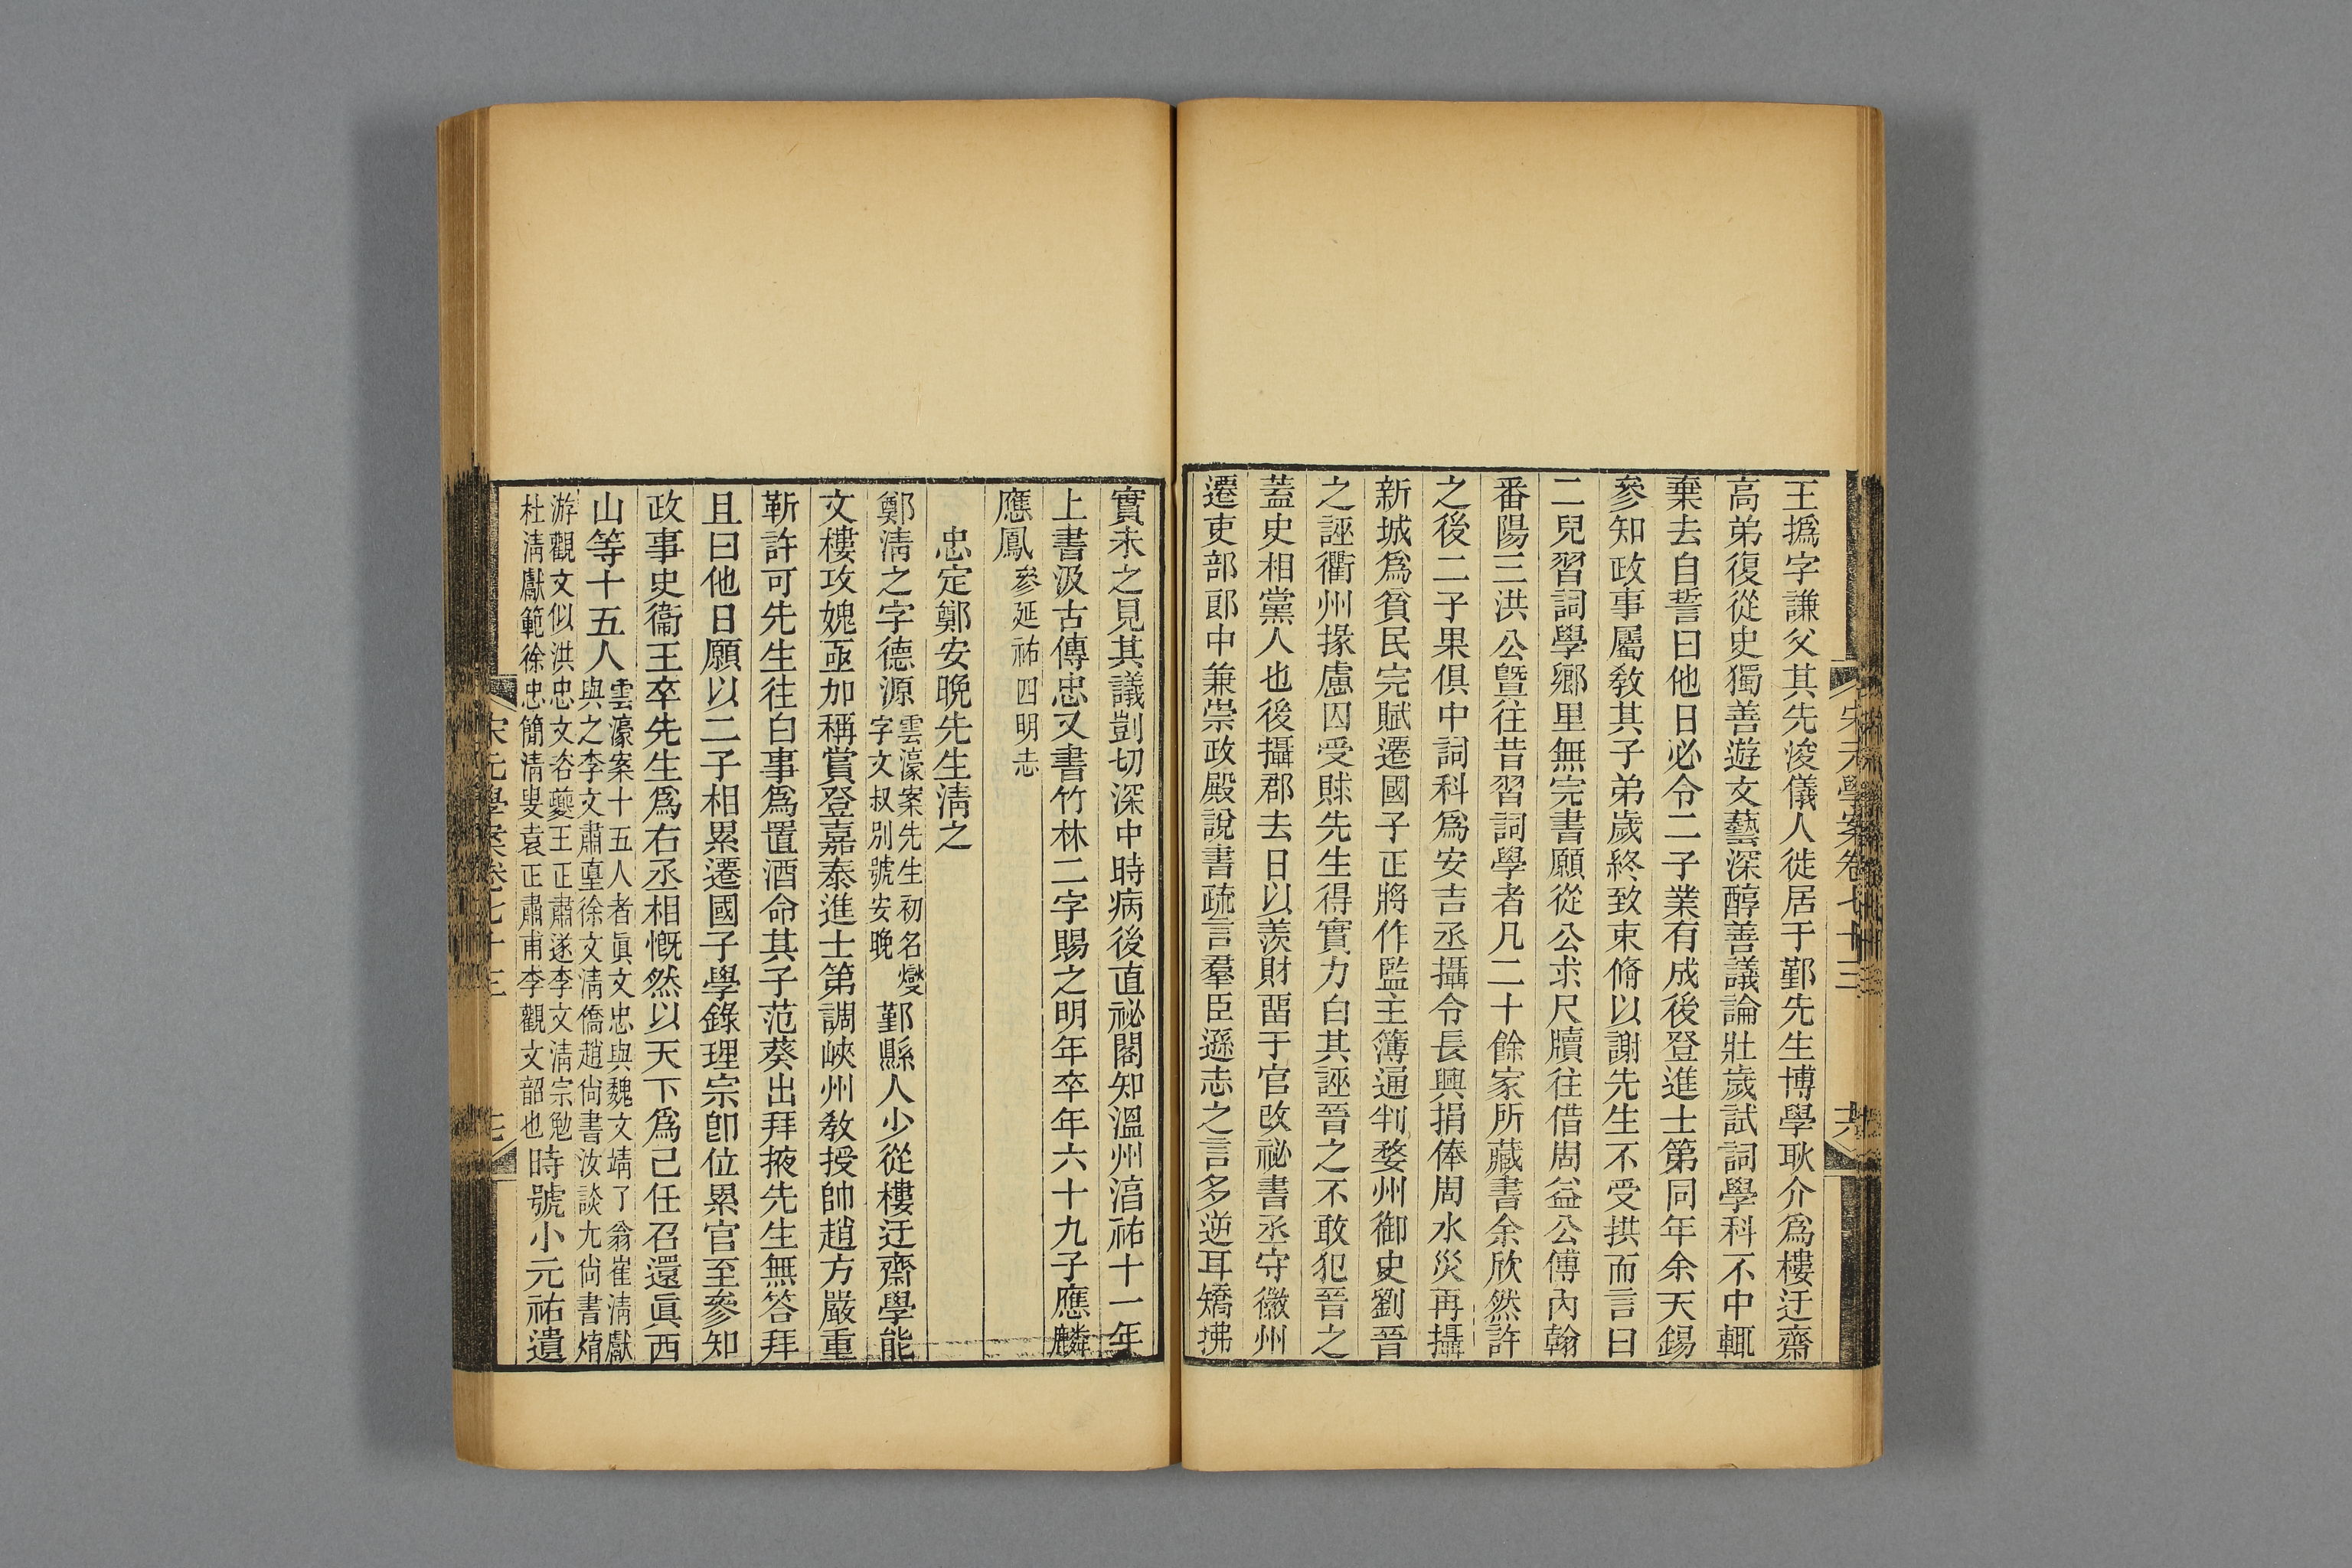 王撝字謙父其先浚儀人徙居于鄞先生博學耿介爲樓迂齋
高弟復從史獨善遊文藝深醇善議論壯歲試詞學科不中輒
棄去自誓曰他日必令二子業有成後登進士第同年余天錫
參知政事屬敎其子弟歲終致束脩以謝先生不受拱而言曰
二兒習詞學鄉里無完書願從公求尺牘往借周益公傅內翰
番陽三洪公曁往昔習詞學者凡二十餘家所藏書余欣然許
之後二子果俱中詞科爲安吉丞攝令長興捐俸周水災再攝
新城爲貧民完賦遷國子正將作監主簿通判婺州御史劉晉
之誣衢州掾慮囚受賕先生得實力白其誣晉之不敢犯晉之
蓋史相黨人也後攝郡去日以羨財畱于官改祕書丞守徽州
遷吏部郎中兼崇政殿說書疏言羣臣遜志之言多逆耳矯拂
宋元學案卷七十三
六
實未之見其議剴切深中時病後直祕閣知溫州淯祐十一年
上書汲古傳忠又書竹林二字賜之明年卒年六十九子應麟
應鳳參延祐四明志
忠定鄭安晚先生淸之
鄭淸之字德源雲濠案先生初名燮字文叔別號安晚鄞縣人少從樓迂齋學能
文樓攻媿亟加稱賞登嘉泰進士第調峽州敎授帥趙方嚴重
靳許可先生往白事爲置酒命其子范葵出拜掖先生無答拜
且曰他日願以二子相累遷國子學錄理宗卽位累官至參知
政事史衞王卒先生爲右丞相慨然以天下爲己任召還眞西
山等十五人雲濠案十五人者眞文忠與魏文靖了翁崔淸獻與之李文肅𡌴徐文淸僑趙尙書汝談尤尙書焴
游觀文似洪忠文咨夔王正肅遂李文淸宗勉杜淸獻範徐忠簡淸叟袁正肅甫李觀文韶也時號小元祐遺
宋元學案卷七十三